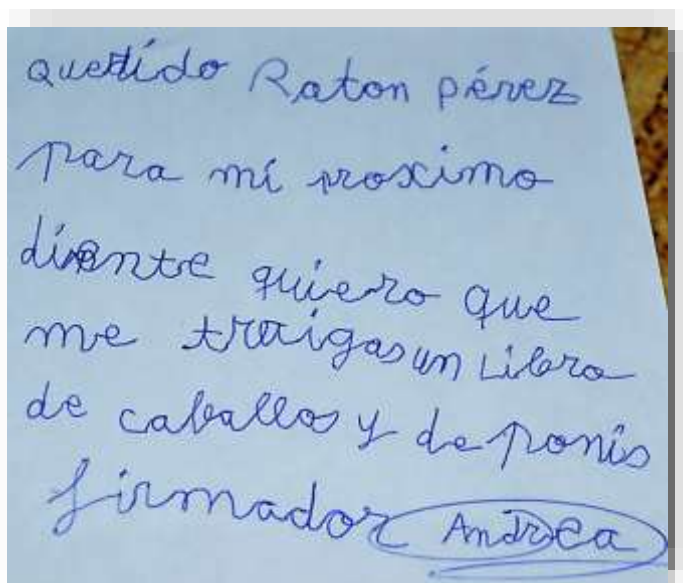 querido Raton pérez
para mí proximo
diente quiero que
me traigas un Libro
de caballos y de ponis
firmador Andrea